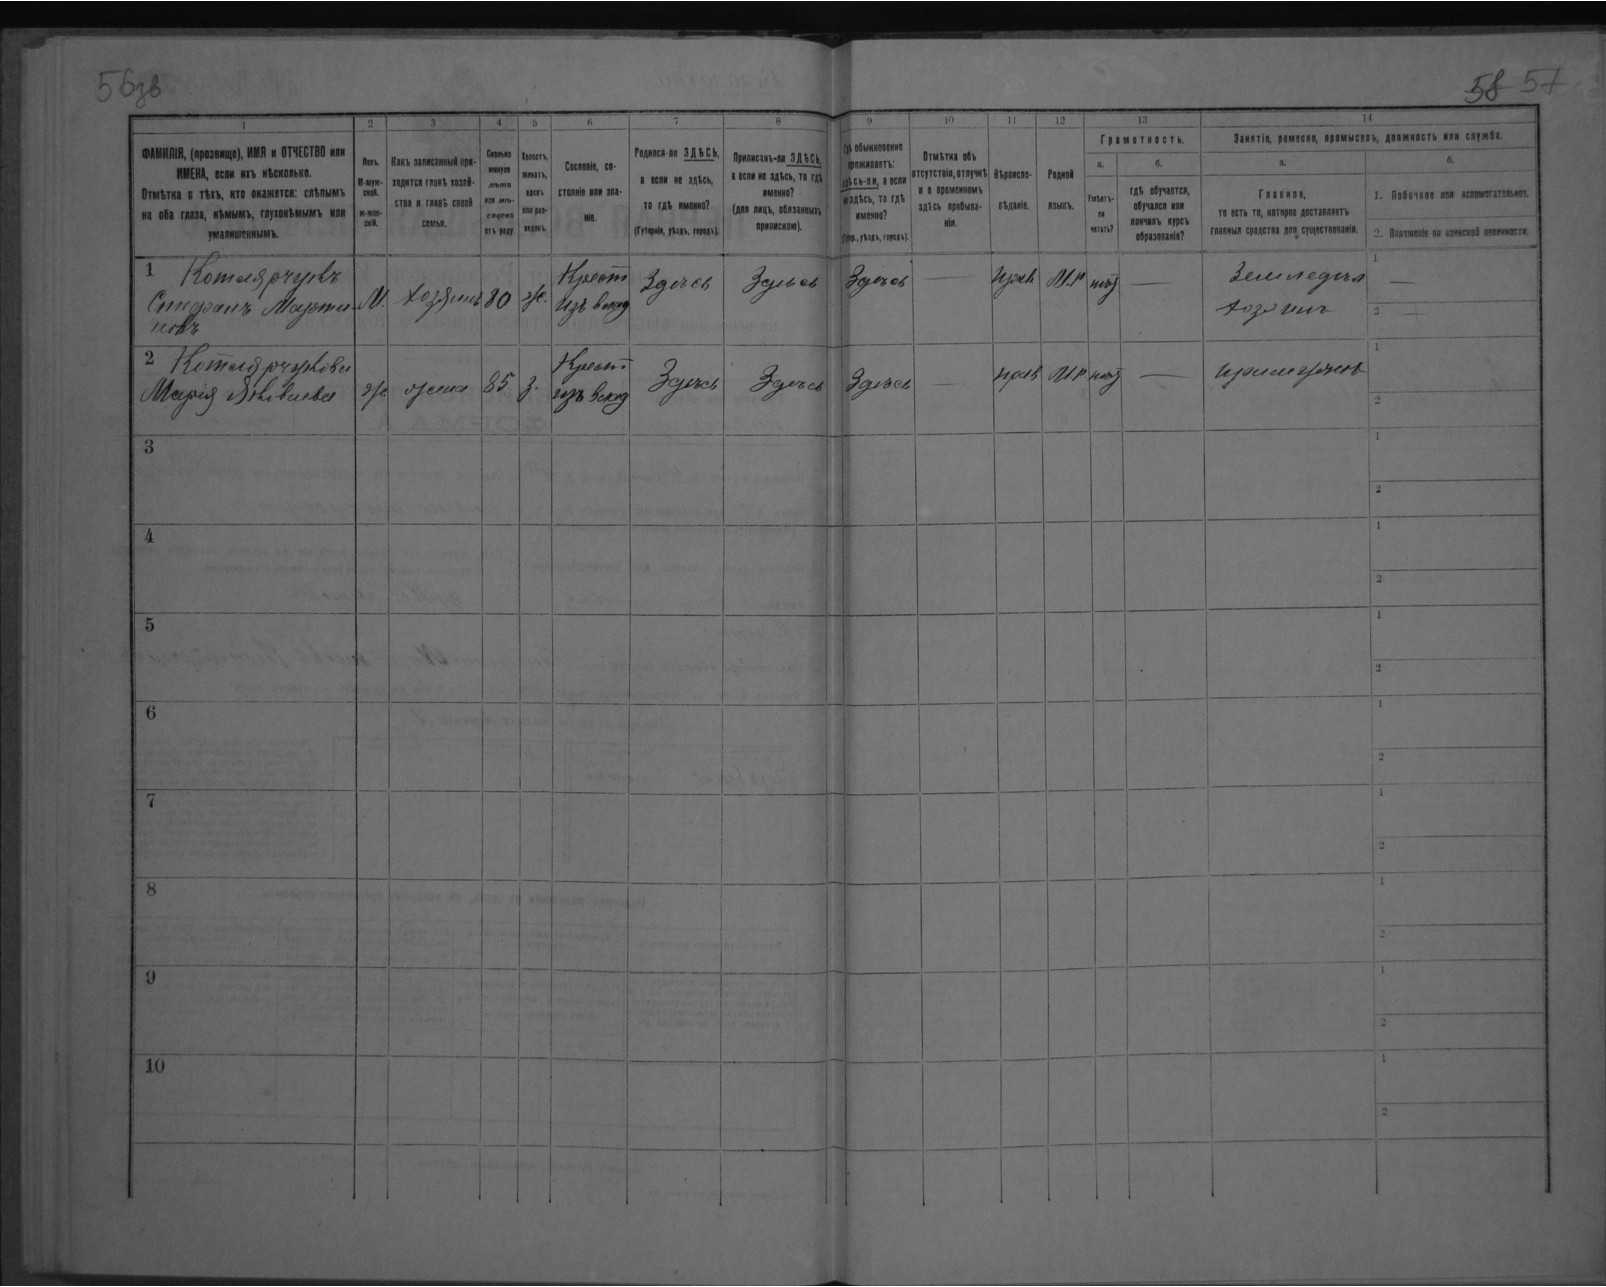 56зв
58 57
1
2
3
4
5
6
7
8
9
10
11
12
13
14
ФАМИЛІЯ, (прозвище), ИМЯ и ОТЧЕСТВО или
ИМЕНА, если ихъ нѣсколько.
Отмѣтка о тѣхъ, кто окажется: слѣпымъ
на оба глаза, нѣмымъ, глухонѣмымъ или
умалишеннымъ.
Полъ.
М-муж-
ской.
ж-жен-
скій.
Какъ записанный при-
ходится главѣ хозяй-
ства и главѣ своей
семьи.
Сколько
минуло
лѣтъ
или мѣ-
сяцевъ
отъ роду.
Холостъ,
женатъ,
вдовъ
или раз-
веденъ.
Сословіе, со-
стояніе или зва-
ніе.
Родился-ли ЗДѢСЬ,
а если не здѣсь,
то гдѣ именно?
(Губернія, уѣздъ, городъ).
Приписанъ-ли ЗДѢСЬ,
а если не здѣсь, то гдѣ
именно?
(для лицъ, обязанныхъ
припискою).
Гдѣ обыкновенно
проживаетъ:
здѣсь-ли, а если
не здѣсь, то гдѣ
именно?
(Губ., уѣздъ, городъ).
Отмѣтка объ
отсутствіи, отлучкѣ
и о временномъ
здѣсь пребыва-
ніи.
Вѣроиспо-
вѣданіе.
Родной
языкъ.
Грамотность.
а.
б.
Умѣетъ-
ли
читать?
гдѣ обучается,
обучался или
кончилъ курсъ
образованія?
Занятіе, ремесло, промыселъ, должность или служба.
а.
б.
Главное,
то есть то, которое доставляетъ
главныя средства для существованія.
1. Побочное или вспомогательное.
2. Положеніе по воинской повинности.
1 Котлярчукъ
Стефанъ Марти-
новъ
М. хозяинъ 80 ж. Крест изъ влад Здѣсь Здѣсь Здѣсь — прав М.Р нѣт — Земледѣл хозяинъ
1 —
2 —
2 Котлярчукова
Марія Яковлева
ж жена 85 з. Крест изъ влад Здѣсь Здѣсь Здѣсь — прав М.Р нѣт —
1
2
3
1
2
4
1
2
5
1
2
6
1
2
7
1
2
8
1
2
9
1
2
10
1
2